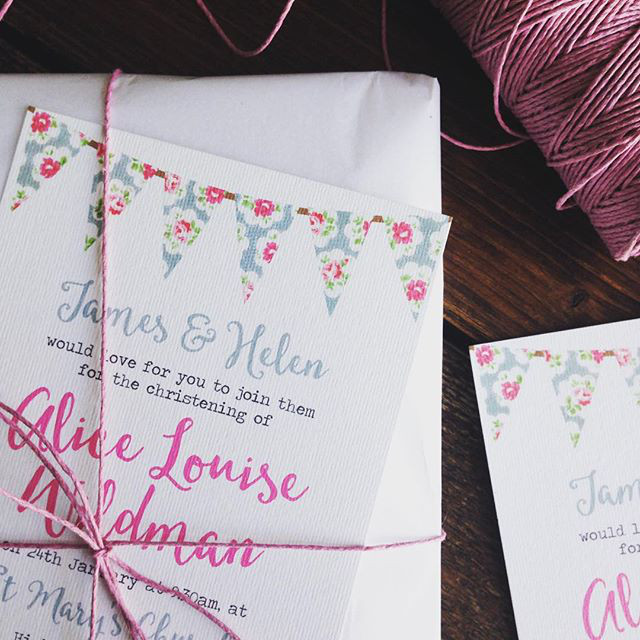 James & Helen
would love for you to join them
for the christening of
Alice Louise
Wildman
on 24th January at 930am, at
St Mary's Church
Hi
Jame
would l
for
Al